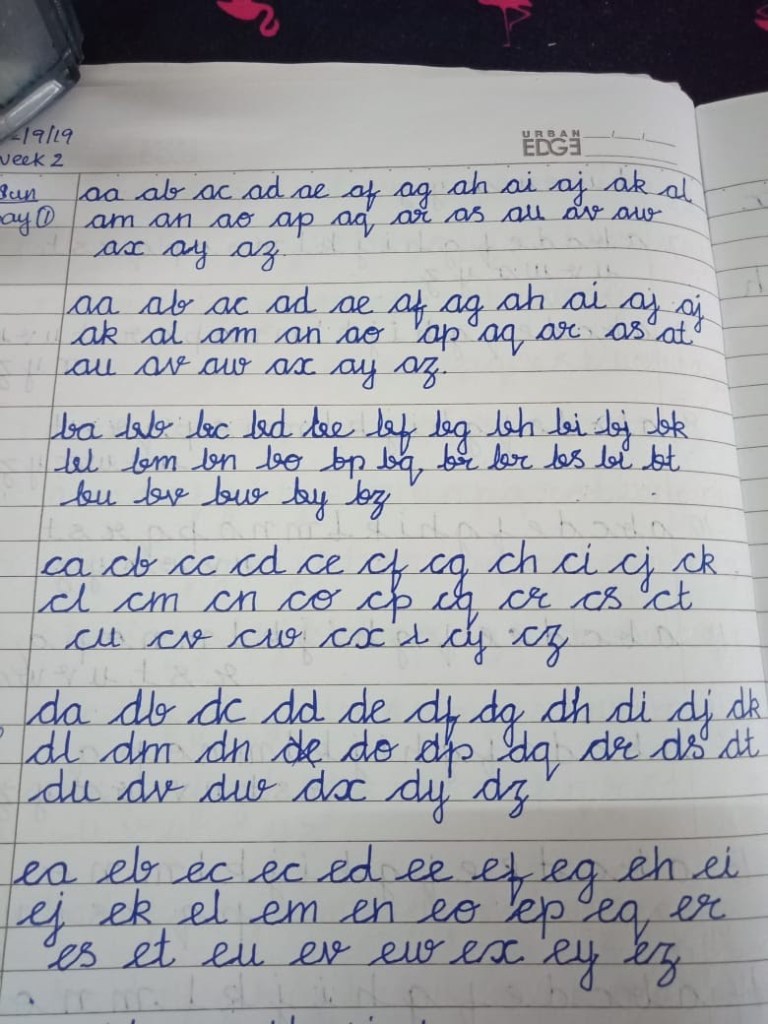 /9/19
week 2
URBAN
EDGE
Sun aa ab ac ad ae af ag ah ai aj ak al
ay ① am an ao ap aq ar as au av aw
ax ay az
aa ab ac ad ae af ag ah ai aj aj
ak al am an ao ap aq ar as at
au av aw ax ay az.
ba bb bc bd be bf bg bh bi bj bk
bl bm bn bo bp bq br br bs bt
bu bv bw by bz
ca cb cc cd ce cf cg ch ci cj ck
cl cm cn co cp cq cr cs ct
cu cv cw cx cy cz
da db dc dd de df dg dh di dj dk
dl dm dn do dp dq dr ds dt
du dv dw dx dy dz
ea eb ec ec ed ee ef eg eh ei
ej ek el em en eo ep eq er
es et eu ev ew ex ey ez